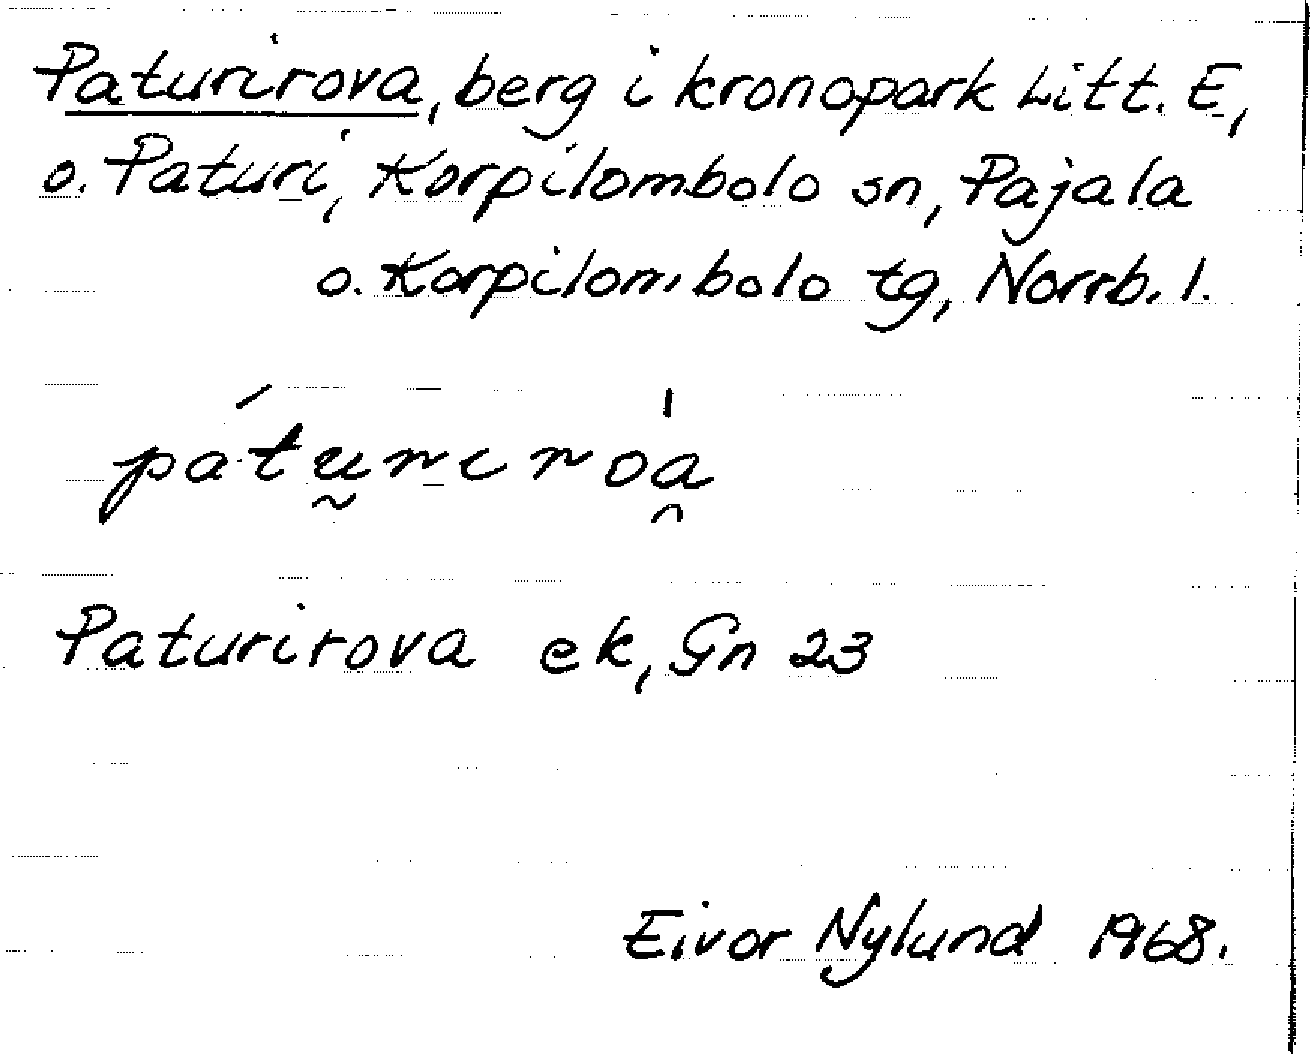 Paturirova, berg i kronopark Litt. E,
o. Paturi, Korpilombolo sn, Pajala
o. Korpilombolo tg, Norrb. l.
Paturirova ek, Gn 23
Eivor Nylund 1968.